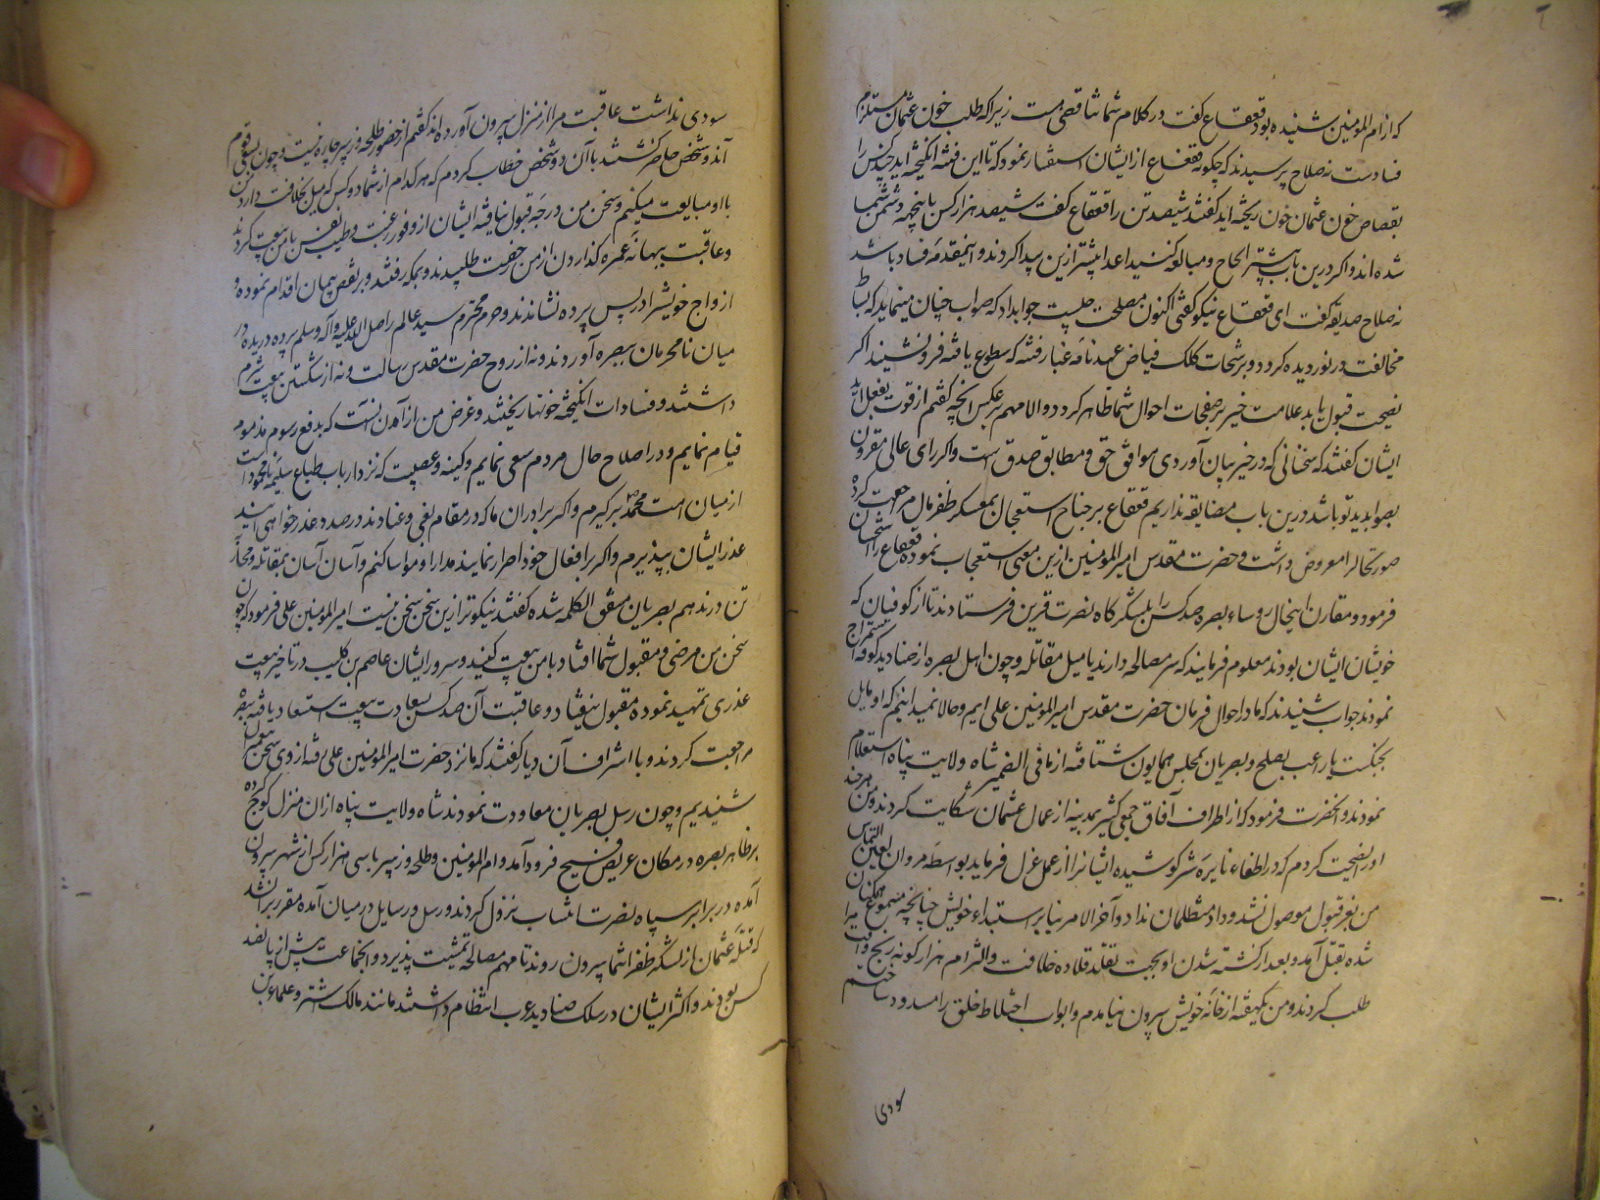 که از ام المومنین شنیده بود قعقاع گفت در کلام شما تناقضی هست زیرا که طلب خون عثمان مستلزم
فسادست نه صلاح پرسیدند که چگونه قعقاع از ایشان استفسار نمود که تا این فتنه انگیخته اید چند کس را
بقصاص خون عثمان خون ریخته اید گفتند ششصد تن را قعقاع گفت ششصد هزار کس باینجهه دشمن شما
شده اند و اکر درین باب بیشتر الحاح و مبالغه کنید اعدا بیشتر ازین پیدا کردند و اینمقدمه فساد باشد
نه صلاح صدیقه گفت ای قعقاع نیکو گفتی اکنون مصلحت چیست جواب داد که صواب چنان مینماید که بساط
مخالفت در نوردیده کردد و برشحات کلک فیاض عهدنامه غبار فتنه که سطوع یافته فرو نشیند اکر
نصیحت قبول یابد علامت خیر بر صفحات احوال شما ظاهر کردد و الا مهم بر عکس آنچه گفتم از قوت بفعل آید
ایشان گفتند که سخنانی که در خیر بیان آوردی موافق حق و مطابق صدق است و اکر رای عالی مقرون
بصوابدید تو باشد درین باب مضایقه نداریم قعقاع بر جناح استعجال بمعسکر ظفر مال مراجعت کرده
صورتحال را معروض داشت و حضرت مقدس امیر المومنین ازین معنی استعجاب نموده قعقاع را استحسان
فرمود و مقارن اینحال روساء بصره صد کس را بلشکرگاه نصرت قرین فرستادند تا از کوفیان که
خویشان ایشان بودند معلوم فرمایند که سر مصالحه دارند یا میل مقاتله و چون اهل بصره از صنادید کوفه استمزاج
نمودند جواب شنیدند که ما در احوال فرمان حضرت مقدس امیر المومنین علی ایم و حالا نمیدانیم که او مایل
بجنکست یا راغب بصلح و بصریان بمجلس همایون شتافته از ما فی الضمیر شاه ولایت پناه استعلام
نمودند و آنحضرت فرمود که از اطراف آفاق جمعی کثیر بمدینه از عمال عثمان شکایت کردند و من هر چند
او را نصیحت کردم که در اطفاء نایره شر کوشیده ایشانرا از عمل عزل فرماید بواسطه مروان لعین التماس
من بعز قبول موصول نشد و داد متظلمان نداد و آخر الامر بنا بر استبداء خویش چنانچه مسموع همکنان
شده بقتل آمد و بعد از کشته شدن او بجهت تقلد قلاده خلافت و التزام هزار کونه رنج و آفت مرا
طلب کردند و من یکهفته از خانه خویش بیرون نیامدم و ابواب اختلاط خلق را مسدود ساختم
سودی
سودی نداشت عاقبت مرا از منزل بیرون آورده اند گفتم از حضور طلحه و زبیر چاره نیست و چون بسعی قوم
آندو شخص حاضر کشتند با آن دو شخص خطاب کردم که هر کدام از شما دو کس که میل بخلافت دارد من
با او مبایعت میکنم و سخن من درجه قبول نیافته ایشان از وفور رغبت و طیب نفس با من بیعت کردند
و عاقبت ببهانه عمره کذاردن از من رخصت طلبیدند و بمکه رفتند و بر نقض پیمان اقدام نموده و
ازواج خویشرا در پس پرده نشاندند و حرم محترم سید عالم را صلی الله علیه و آله وسلم پرده دریده در
میان نامحرمان ببصره آوردند و نه از روح حضرت مقدس رسالت و نه از شکستن بیعت شرم
داشتند و فسادات انکیخته خونها ریختند و غرض من از آمدن آنست که بدفع رسوم مذموم
قیام نمایم و در اصلاح حال مردم سعی نمایم و کینه و عصبیت که نزد ارباب طباع سلیمه نامحمود است
از میان امت محمد بر کیرم و اکر برادران ما که در مقام بغی و عنادند در صدد عذر خواهی آیند
عذر ایشان بپذیرم و اکر بر افعال خود اصرار نمایند مدارا و مواسا کنم و آسان آسان بمقاتله و محاربه
تن در ندهم بصریان متفق الکلمه شده گفتند نیکوتر ازین سخن سخن نیست امیر المومنین علی فرمود که چون
سخن من مرضی و مقبول شما افتاد با من بیعت کنید و سرور ایشان عاصم بن کلیب در تاخیر بیعت
عذری تمهید نموده مقبول نیفتاد و عاقبت آن صد کس بسعادت بیعت استسعاد یافته ببصره
مراجعت کردند و با اشراف آن دیار گفتند که ما نزد حضرت امیر المومنین علی رفته از وی سخن
شنیدیم و چون رسل بصریان معاودت نمودند شاه ولایت پناه از ان منزل کوچ کرده
بر ظاهر بصره در مکان عریض فسیح فرود آمد و ام المومنین و طلحه و زبیر با سی هزار کس از شهر بیرون
آمده در برابر سپاه نصرت انتساب نزول کردند و رسل و رسایل در میان آمده مقرر بر آنشد
که قتله عثمان از لشکر ظفر انتما بیرون روند تا مهم مصالحه تمشیت پذیرد و آنجماعت بیش از پانصد
کس بودند و اکثر ایشان در سلک صنادید عرب انتظام داشتند مانند مالک اشتر و علباء بن